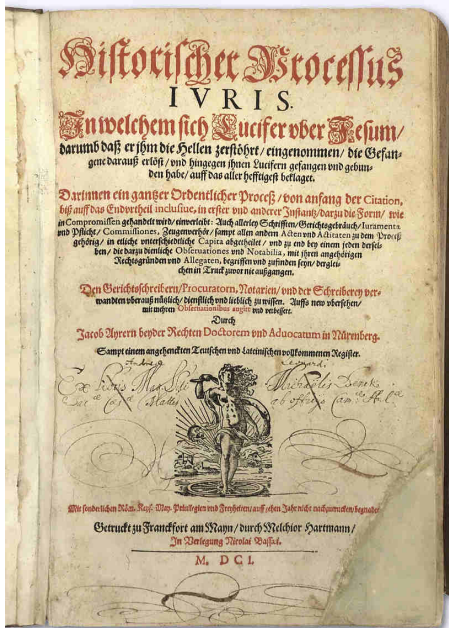 Historischer Processus
IVRIS.
In welchem sich Lucifer vber Jesum/
darumb daß er jhm die Hellen zerstöhrt/ eingenommen/ die Gefan-
gene darauß erlöst/ vnd hingegen jhnen Lucifern gefangen vnd gebun-
den habe/ auff das aller hefftigest beklaget.
Darinnen ein gantzer Ordentlicher Proceß/ von anfang der Citation,
biß auff das Endvrtheil inclusiue, in erster vnd anderer Instantz/ darzu die Form/ wie
in Compromissen gehandelt wird/ einverleibt: Auch allerley Schrifften/ Gerichtsgebräuch/ Iuramenta
vnd Pflicht/ Commissiones, Zeugenverhör/ sampt allen andern Acten vnd Actitaten zu dem Proceß
gehörig/ in etliche vnterschiedliche Capita abgetheilet/ vnd zu end bey einem jeden dersel-
ben/ die darzu dienliche Obseruationes vnd Notabilia, mit jhren angehörigen
Rechtsgründen vnd Allegaten, begriffen vnd zufinden seyn/ derglei-
chen in Truck zuvor nie außgangen.
Den Gerichtschreibern/ Procuratorn, Notarien/ vnd der Schreiberey ver-
wandten vberauß nützlich/ dienstlich vnd lieblich zu wissen. Auffs new vbersehen/
mit mehren Obseruationibus augirt vnd verbessert.
Durch
Jacob Ayrern beyder Rechten Doctorem vnd Aduocatum in Nürenberg.
Sampt einem angehenckten Teutschen vnd Lateinischen vollkommenen Register.
Mit sonderlichen Röm. Keys. May. Priuilegien vnd Freyheiten/ auff zehen Jahr nicht nachzutrucken/ begnadet
Getruckt zu Franckfort am Mayn/ durch Melchior Hartmann/
In Verlegung Nicolai Bassæi.
M. DCI.